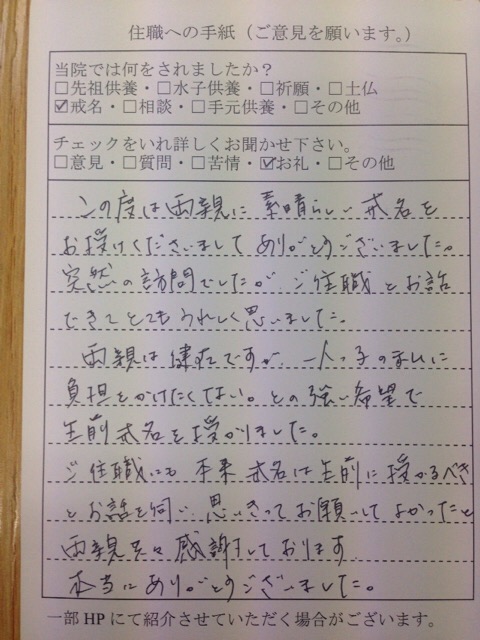 住職への手紙（ご意見を願います。）
当院では何をされましたか？
□先祖供養・□水子供養・□祈願・□土仏
☑戒名・□相談・□手元供養・□その他
チェックをいれ詳しくお聞かせ下さい。
□意見・□質問・□苦情・☑お礼・□その他
この度は両親に素晴らしい戒名を
お授けくださいましてありがとうございました。
突然の訪問でしたが ご住職とお話
できてとてもうれしく思いました。
両親は健在ですが、一人っ子の私に
負担をかけたくない。との強い希望で
生前戒名を授かりました。
ご住職にも本来戒名は生前に授かるべき
とお話を伺い、思いきってお願いしてよかったと
両親共々感謝しております
本当にありがとうございました。
一部HPにて紹介させていただく場合がございます。